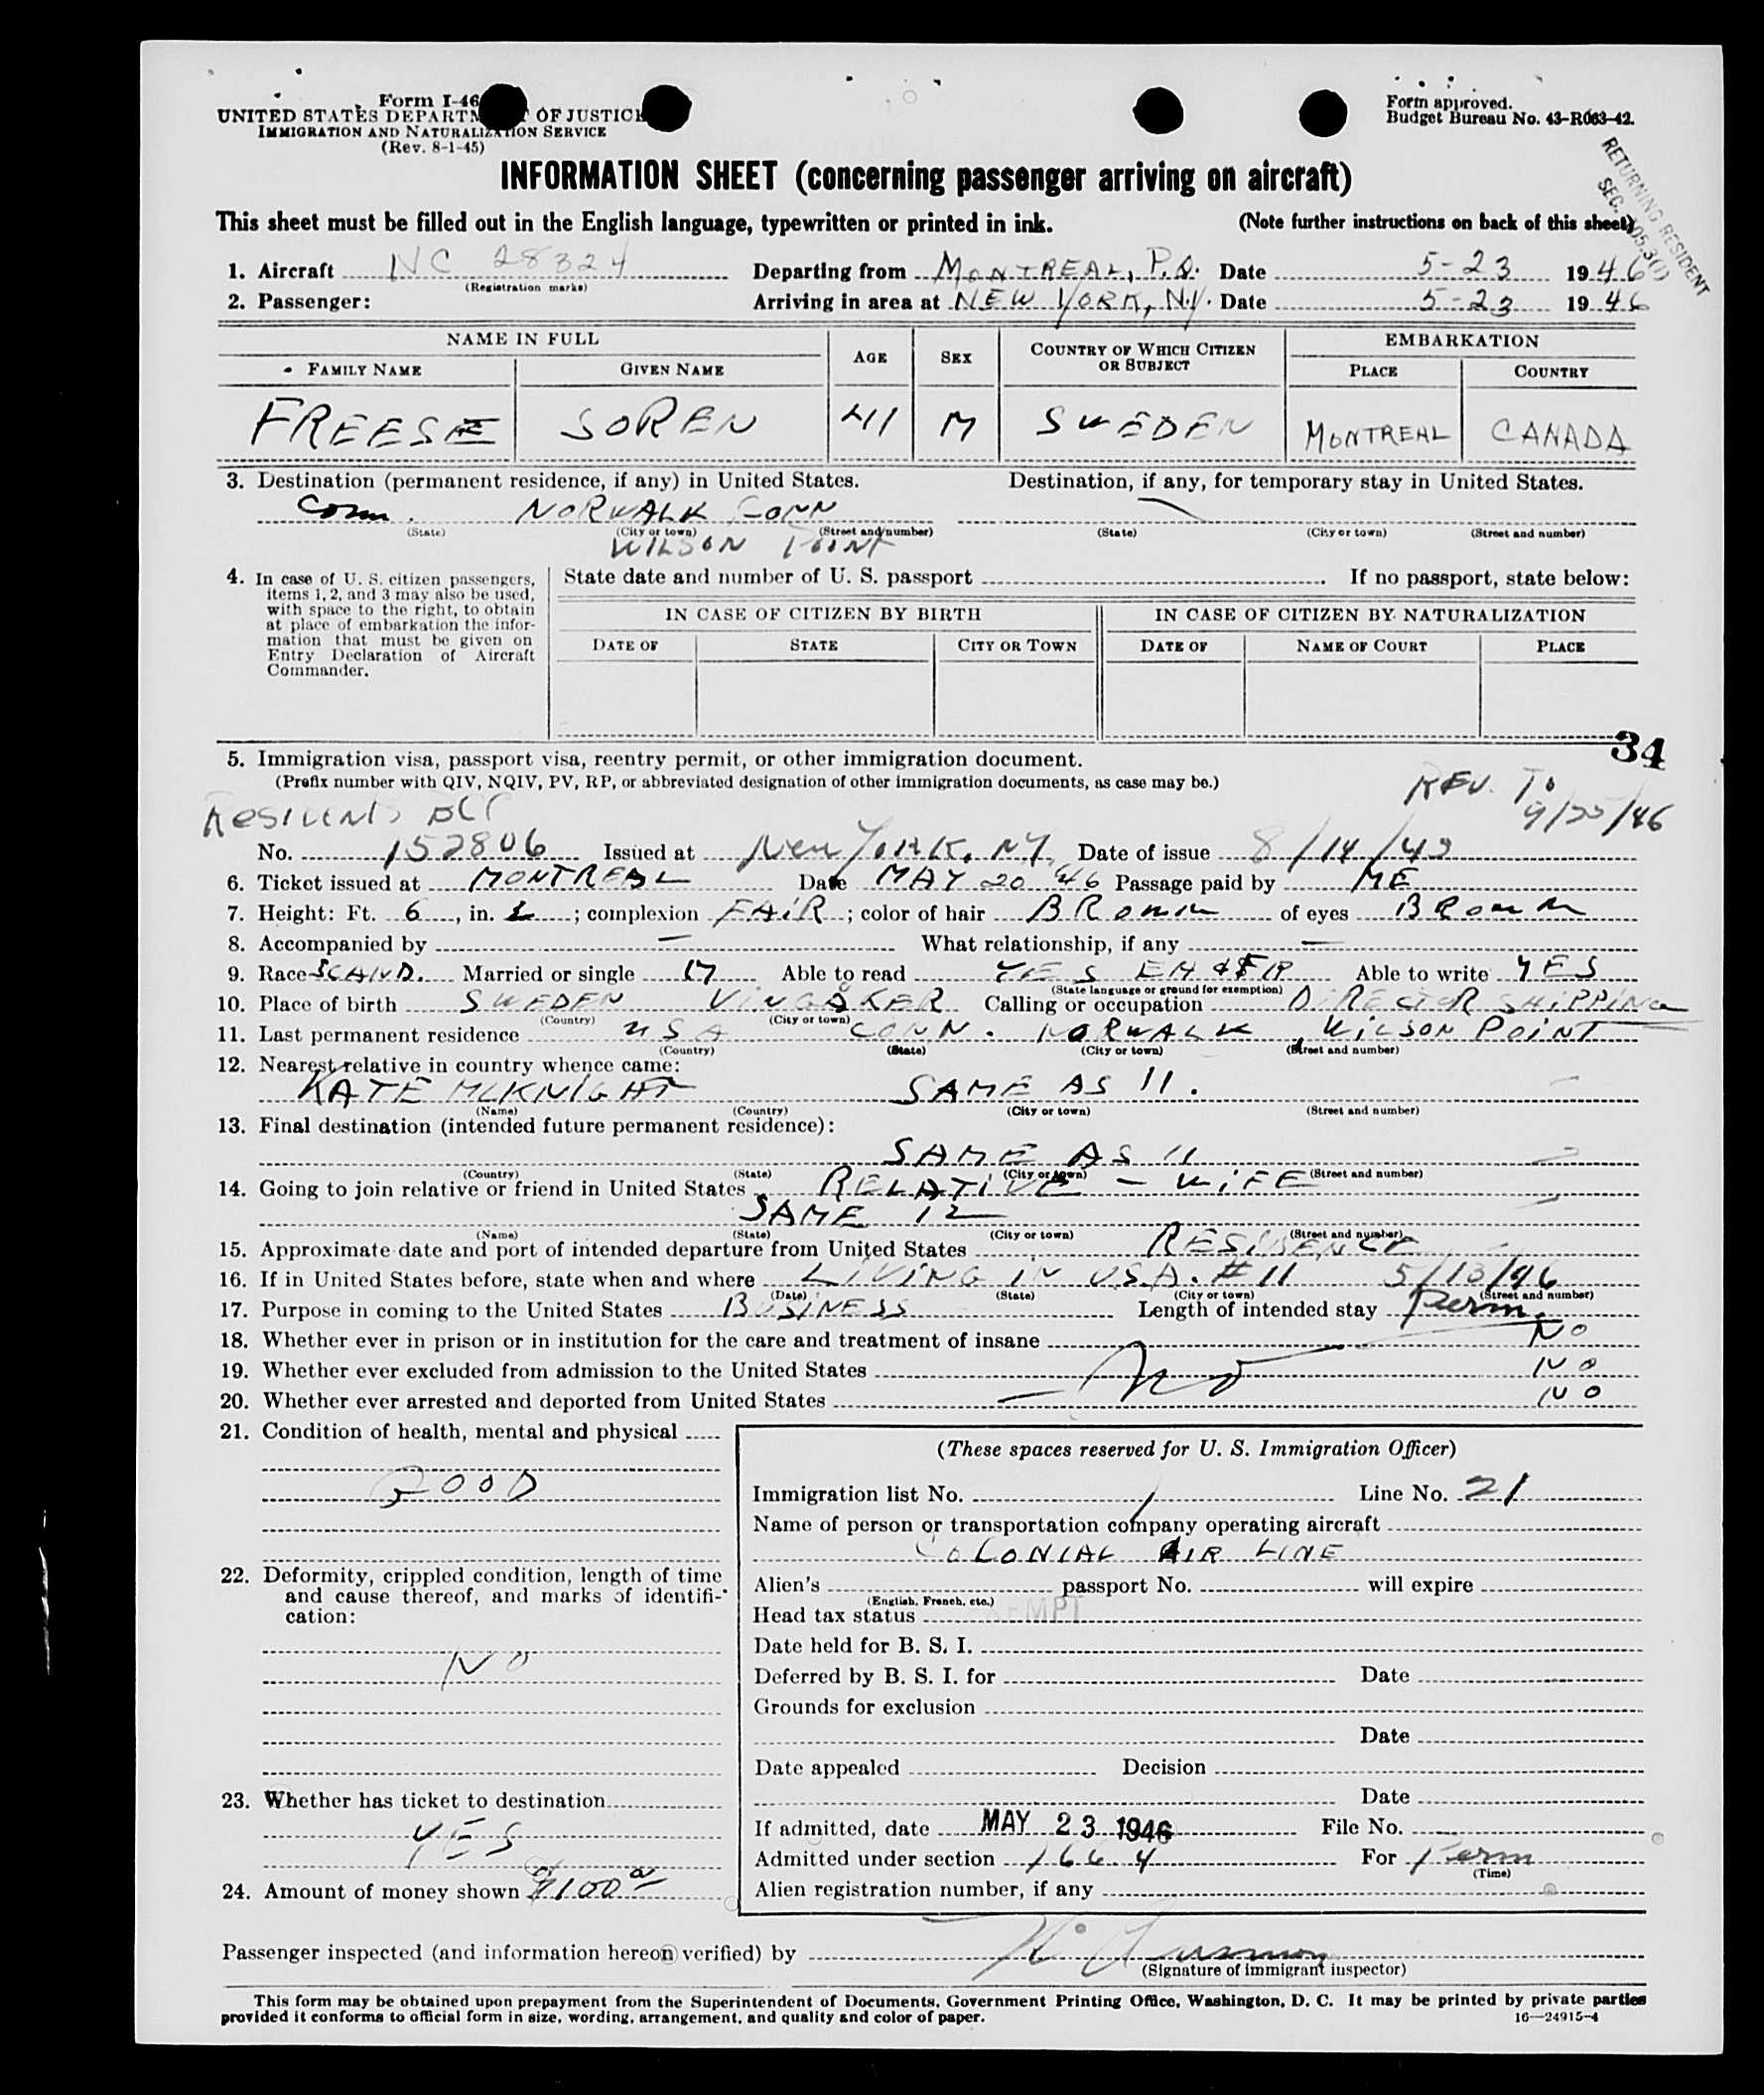 Form I-46
UNITED STATES DEPARTM OF JUSTICE
IMMIGRATION AND NATURALIZATION SERVICE
(Rev. 8-1-45)
Form approved.
Budget Bureau No. 43-R063-42.
RETURNING RESIDENT
SEC. 105.3(1)
INFORMATION SHEET (concerning passenger arriving on aircraft)
This sheet must be filled out in the English language, typewritten or printed in ink. (Note further instructions on back of this sheet)
1. Aircraft NC 28324 Departing from MONTREAL, P.Q. Date 5-23 1946
(Registration marks)
2. Passenger: Arriving in area at NEW YORK, N.Y. Date 5-23 1946
NAME IN FULL AGE SEX COUNTRY OF WHICH CITIZEN OR SUBJECT EMBARKATION
FAMILY NAME GIVEN NAME PLACE COUNTRY
FREESE SOREN 41 M SWEDEN MONTREAL CANADA
3. Destination (permanent residence, if any) in United States. Destination, if any, for temporary stay in United States.
Conn. NORWALK CONN —
(State) (City or town) (Street and number) (State) (City or town) (Street and number)
WILSON POINT
4. In case of U. S. citizen passengers, items 1, 2, and 3 may also be used, with space to the right, to obtain at place of embarkation the information that must be given on Entry Declaration of Aircraft Commander.
State date and number of U. S. passport . If no passport, state below:
IN CASE OF CITIZEN BY BIRTH IN CASE OF CITIZEN BY NATURALIZATION
DATE OF STATE CITY OR TOWN DATE OF NAME OF COURT PLACE
34
5. Immigration visa, passport visa, reentry permit, or other immigration document.
(Prefix number with QIV, NQIV, PV, RP, or abbreviated designation of other immigration documents, as case may be.)
REV. To
9/25/46
RESIDENTS BCC
No. 152806 Issued at New York, NY. Date of issue 8/14/42
6. Ticket issued at MONTREAL Date MAY 20 '46 Passage paid by ME
7. Height: Ft. 6, in. 2; complexion FAIR; color of hair BROWN of eyes BROWN
8. Accompanied by — What relationship, if any —
9. Race SCAND. Married or single M Able to read YES EN & FR Able to write YES
(State language or ground for exemption)
10. Place of birth SWEDEN VINGÅKER Calling or occupation DIRECTOR SHIPPING
(Country) (City or town)
11. Last permanent residence USA CONN. NORWALK WILSON POINT
(Country) (State) (City or town) (Street and number)
12. Nearest relative in country whence came:
KATE MCKNIGHT SAME AS 11. —
(Name) (Country) (City or town) (Street and number)
13. Final destination (intended future permanent residence):
SAME AS 11
(Country) (State) (City or town) (Street and number)
14. Going to join relative or friend in United States RELATIVE - WIFE
SAME 12
(Name) (State) (City or town) (Street and number)
15. Approximate date and port of intended departure from United States RESIDENCE
16. If in United States before, state when and where LIVING IN USA. #11 5/13/46
(Date) (State) (City or town) (Street and number)
17. Purpose in coming to the United States BUSINESS Length of intended stay Perm.
18. Whether ever in prison or in institution for the care and treatment of insane NO
19. Whether ever excluded from admission to the United States No NO
20. Whether ever arrested and deported from United States NO
21. Condition of health, mental and physical
GOOD
22. Deformity, crippled condition, length of time and cause thereof, and marks of identification:
NO
23. Whether has ticket to destination
YES
24. Amount of money shown $100
(These spaces reserved for U. S. Immigration Officer)
Immigration list No. 1 Line No. 21
Name of person or transportation company operating aircraft
COLONIAL AIR LINE
Alien's passport No. will expire
(English, French, etc.)
Head tax status EXEMPT
Date held for B. S. I.
Deferred by B. S. I. for Date
Grounds for exclusion
Date
Date appealed Decision
Date
If admitted, date MAY 23 1946 File No.
Admitted under section 166.4 For Perm
(Time)
Alien registration number, if any
Passenger inspected (and information hereon verified) by
(Signature of immigrant inspector)
This form may be obtained upon prepayment from the Superintendent of Documents, Government Printing Office, Washington, D. C. It may be printed by private parties
provided it conforms to official form in size, wording, arrangement, and quality and color of paper. 16—24915-4